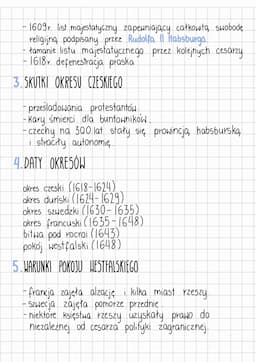 - 1609r. list majestatyczny zapewniający całkowitą swobodę
religijną podpisany przez Rudolfa II Habsburga.
- łamanie listu majestatycznego przez kolejnych cesarzy
- 1618r. defenestracja praska
3. SKUTKI OKRESU CZESKIEGO
- prześladowania protestantów
- kary śmierci dla buntowników.
- czechy na 300 lat stały się prowincją habsburską
i straciły autonomię.
4. DATY OKRESÓW
okres czeski (1618-1624)
okres duński (1624-1629)
okres szwedzki (1630-1635)
okres francuski (1635-1648)
bitwa pod rocroi (1643)
pokój westfalski (1648)
5. WARUNKI POKOJU WESTFALSKIEGO
- francja zajęła alzację i kilka miast rzeszy
- szwecja zajęła pomorze przednie.
- niektóre księstwa rzeszy uzyskały prawo do
niezależnej od cesarza polityki zagranicznej.